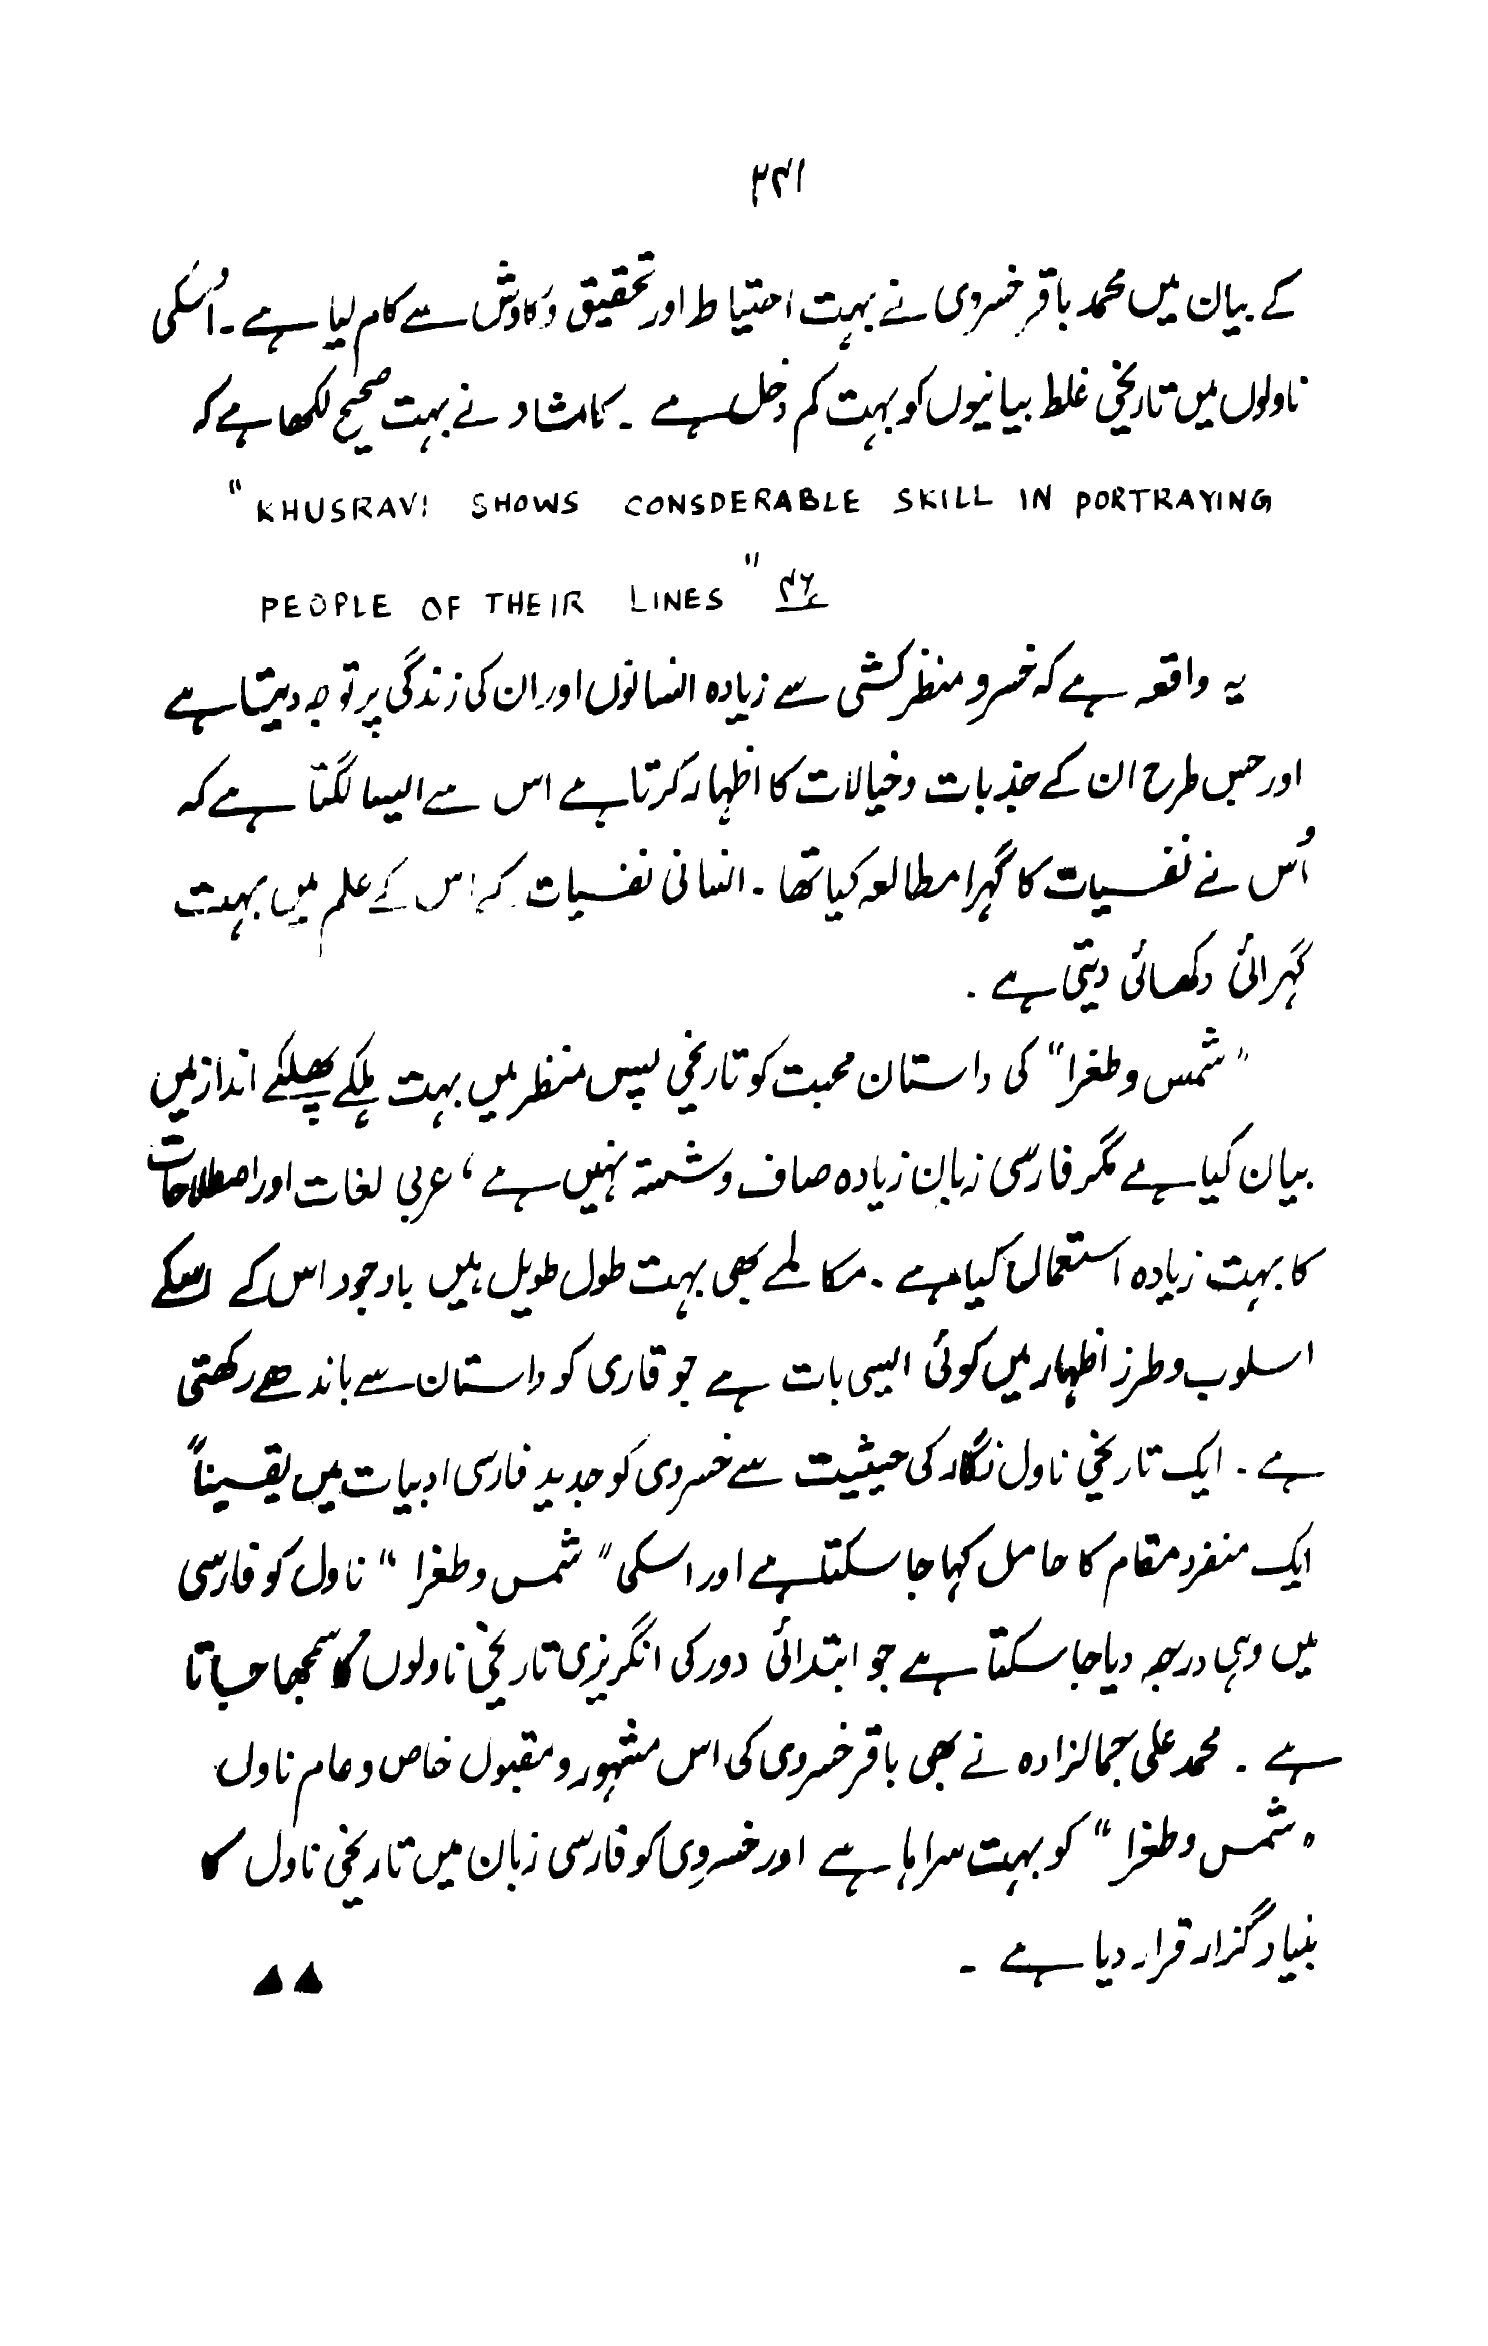 ۲۴۱
کے بیان میں محمد باقر خسروی نے بہت احتیاط اور تحقیق و کاوش سے کام لیا ہے۔ اُسکی
ناولوں میں تاریخی غلط بیانیوں کو بہت کم دخل ہے ۔ کامشاد نے بہت صحیح لکھا ہے کہ
"KHUSRAVI SHOWS CONSDERABLE SKILL IN PORTRAYING
PEOPLE OF THEIR LINES"
یہ واقعہ ہے کہ خسرو منظر کشی سے زیادہ انسانوں اور ان کی زندگی پر توجہ دیتا ہے
اور جس طرح ان کے جذبات و خیالات کا اظہار کرتا ہے اس سے ایسا لگتا ہے کہ
اُس نے نفسیات کا گہرا مطالعہ کیا تھا ۔ انسانی نفسیات کے اس کے علم میں بہت
گہرائی دکھائی دیتی ہے ۔
"شمس و طغرا" کی داستان محبت کو تاریخی پس منظر میں بہت ہلکے پھلکے انداز میں
بیان کیا ہے مگر فارسی زبان زیادہ صاف و شستہ نہیں ہے ، عربی لغات اور اصطلاحات
کا بہت زیادہ استعمال کیا ہے ۔ مکالمے بھی بہت طول طویل ہیں باوجود اس کے اسکے
اسلوب و طرز اظہار میں کوئی ایسی بات ہے جو قاری کو داستان سے باندھے رکھتی
ہے ۔ ایک تاریخی ناول نگار کی حیثیت سے خسروی کو جدید فارسی ادبیات میں یقیناً
ایک منفرد مقام کا حامل کہا جا سکتا ہے اور اسکی "شمس و طغرا" ناول کو فارسی
میں وہی درجہ دیا جا سکتا ہے جو ابتدائی دور کی انگریزی تاریخی ناولوں کا سمجھا جاتا
ہے ۔ محمد علی جمالزادہ نے بھی باقر خسروی کی اس مشہور و مقبول خاص و عام ناول
"شمس و طغرا" کو بہت سراہا ہے اور خسروی کو فارسی زبان میں تاریخی ناول کا
بنیاد گزار قرار دیا ہے ۔